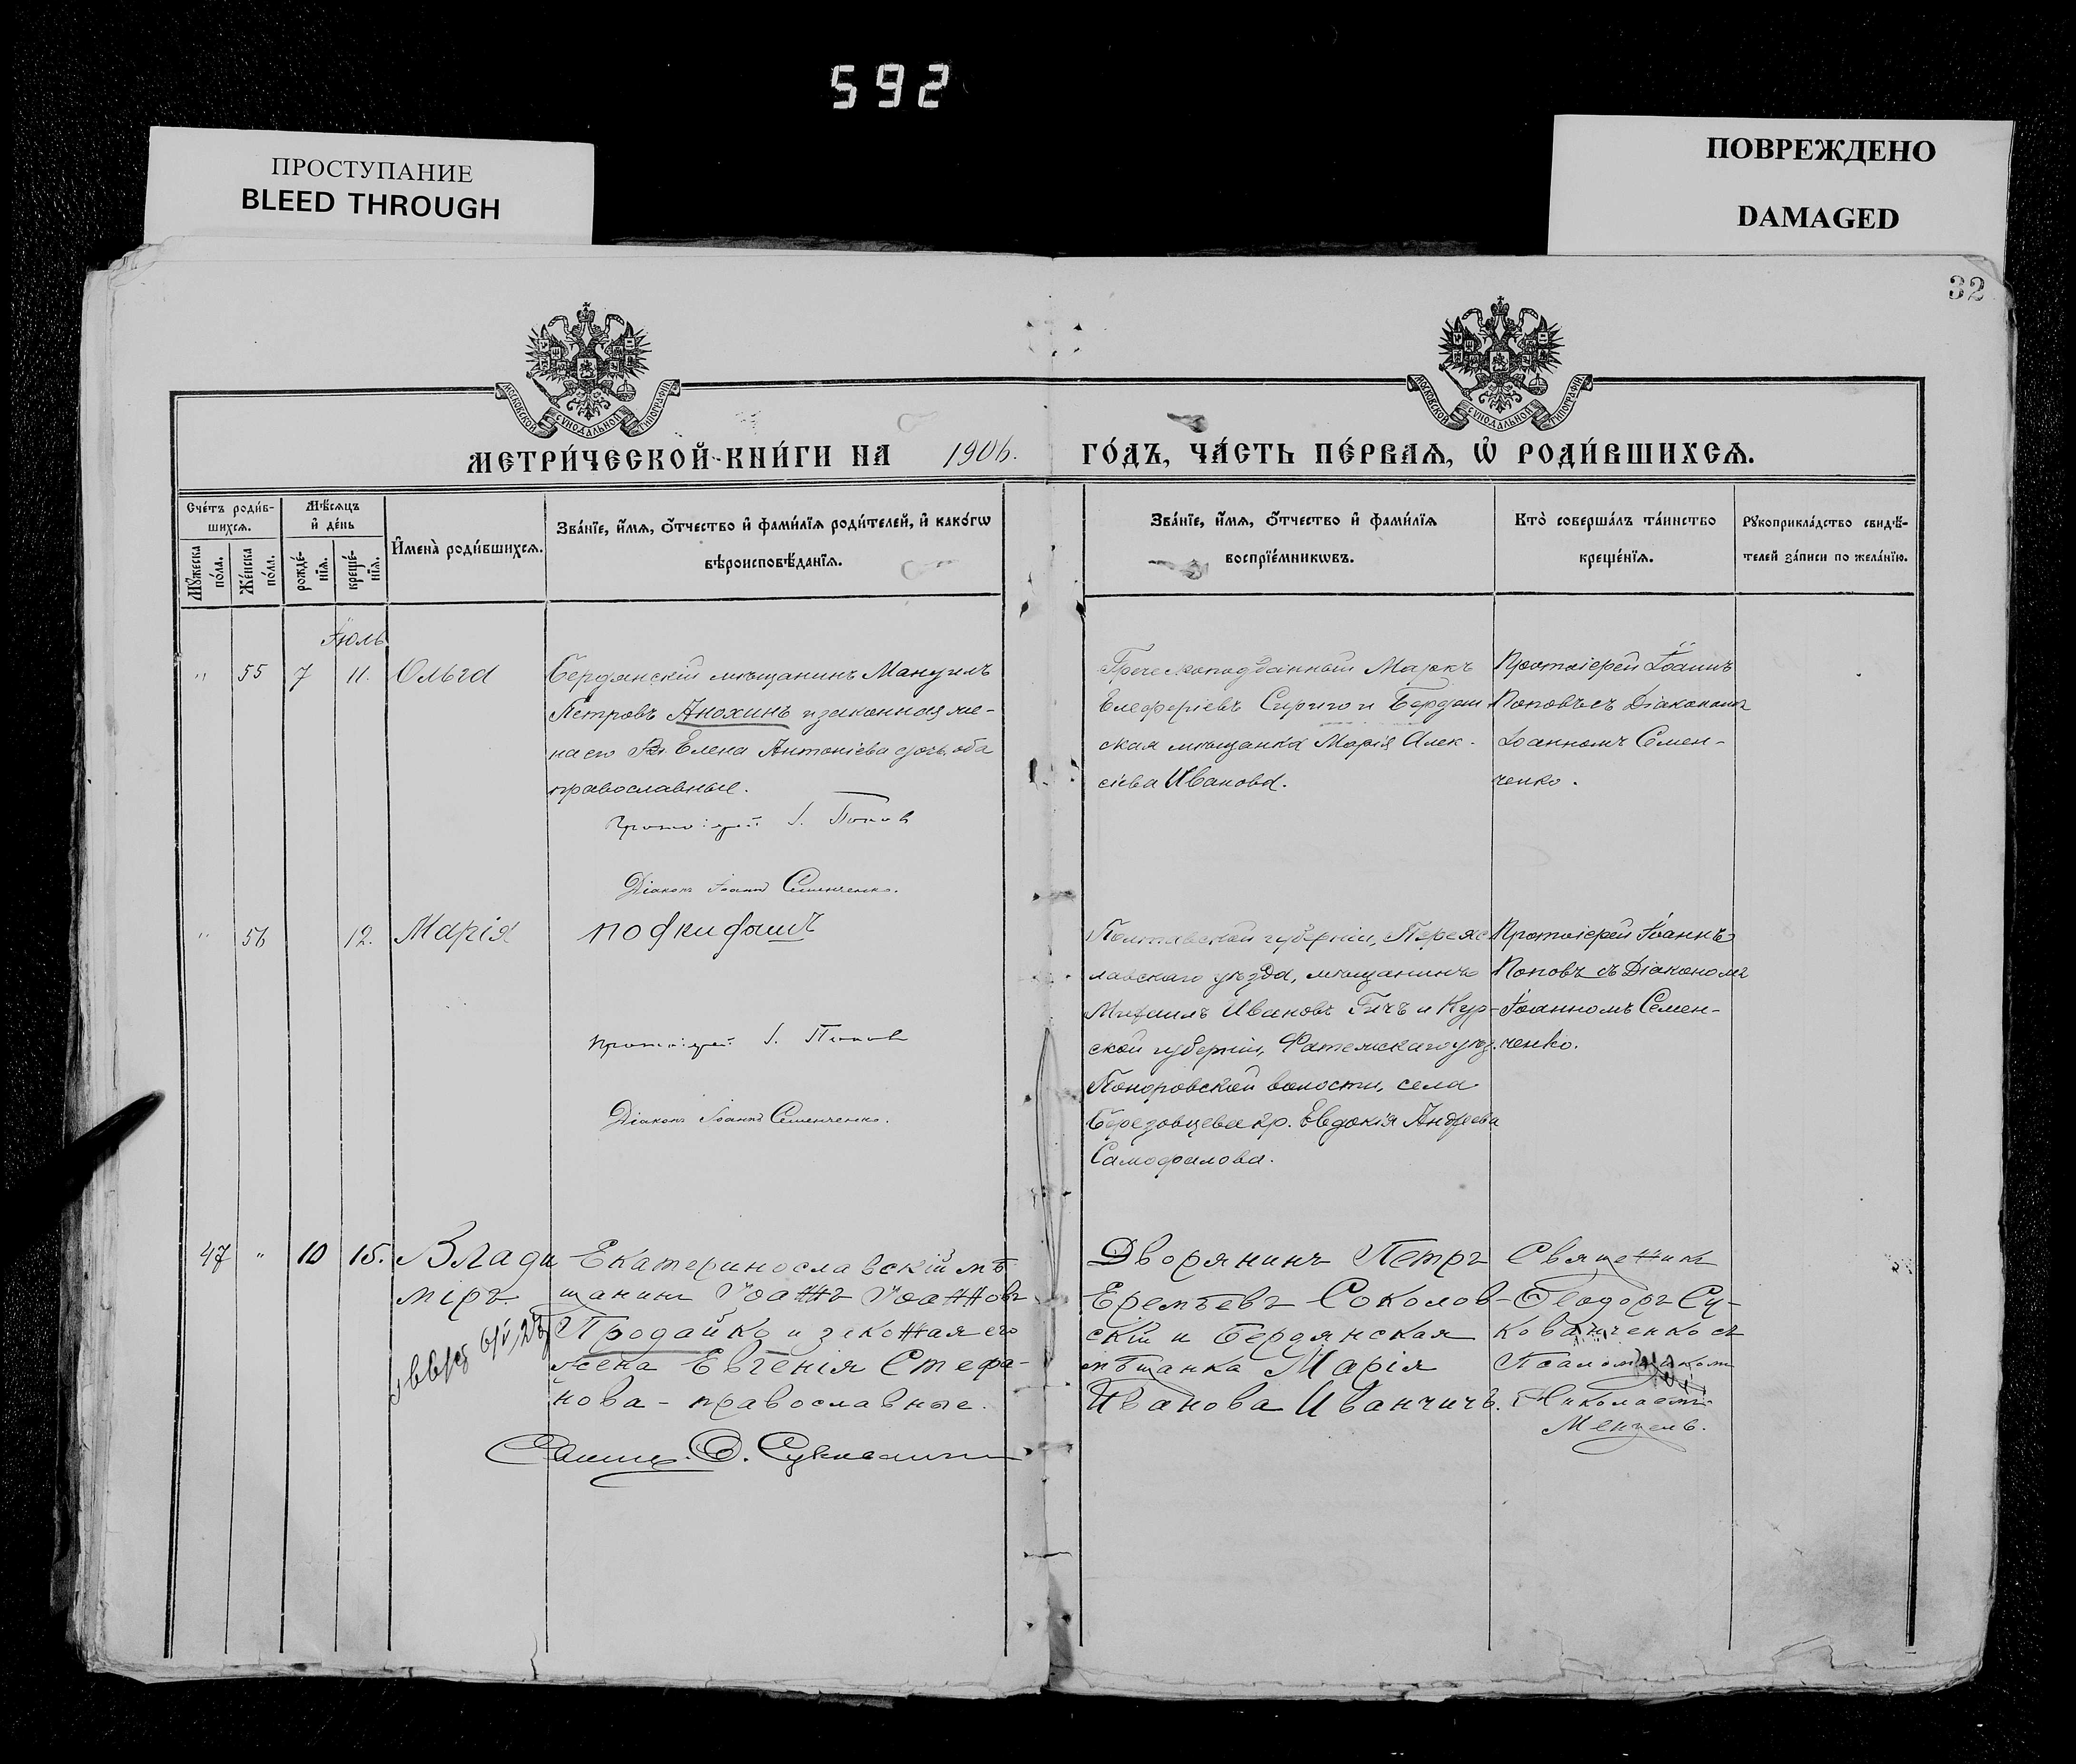 592
ПРОСТУПАНИЕ
BLEED THROUGH
ПОВРЕЖДЕНО
DAMAGED
32
МОСКОВСКОЙ СѴНОДАЛЬНОЙ ТИПОГРАФІИ
МОСКОВСКОЙ СѴНОДАЛЬНОЙ ТИПОГРАФІИ
МЕТРИ́ЧЕСКОЙ КНИ́ГИ НА 1906. ГО́ДЪ, ЧА́СТЬ ПЕ́РВАЯ, Ѡ РОДИ́ВШИХСЯ.
Сче́тъ роди́в-
шихся.
Мꙋ́жеска по́ла.
Же́нска по́ла.
Мѣ́сяцъ и де́нь
рожде́-нїя.
креще́-нїя.
Имена̀ роди́вшихся.
Зва́нїе, и́мя, о́тчество и фами́лїя роди́телей, и како́гѡ
вѣроисповѣ́данїя.
Зва́нїе, и́мя, о́тчество и фами́лїя
воспрїе́мникѡвъ.
Кто̀ соверша́лъ та́инство
креще́нїя.
Рꙋкоприкла́дство свидѣ́-
телей за́писи по жела́нїю.
Іюль
" 55 7 11. Ольга
Бердянскій мѣщанинъ Мануилъ
Петровъ Анохинъ и законная же-
на его Елена Антоніева оба
православные.
Протоіерей І. Попов
Діаконъ Іоаннъ Семенченко.
Греческоподданный Маркъ
Елеферіевъ Сириго и Бердян
ская мѣщанка Марія Алек-
сіева Иванова.
Протоіерей Іоаннъ
Поповъ съ Діакономъ
Іоанномъ Семен-
ченко.
" 56 12. Марія
подкидышъ
Протоіерей І. Попов
Діаконъ Іоаннъ Семенченко.
Полтавской губерніи, Переяс
лавскаго уѣзда, мѣщанинъ
Михаилъ Ивановъ и Кур-
ской губерніи, Фатежскаго уѣз.
Поныровской волости, села
Березовцева кр. Евдокія Андреева
Самофалова.
Протоіерей Іоаннъ
Поповъ съ Діакономъ
Іоанномъ Семен-
ченко.
47 " 10 15. Влади
міръ.
Екатеринославскій мѣ
щанинъ Іоаннъ Іоанновъ
Продайко и законная его
жена Евгенія Стефа-
нова - православные.
Дворянинъ Петръ
Еремѣевъ Соколов-
скій и Бердянская
мѣщанка Марія
Иванова Иванчичъ.
Священникъ
Ѳеодоръ Су-
кованченко съ
Псаломщикомъ
Николаемъ
Менцель.